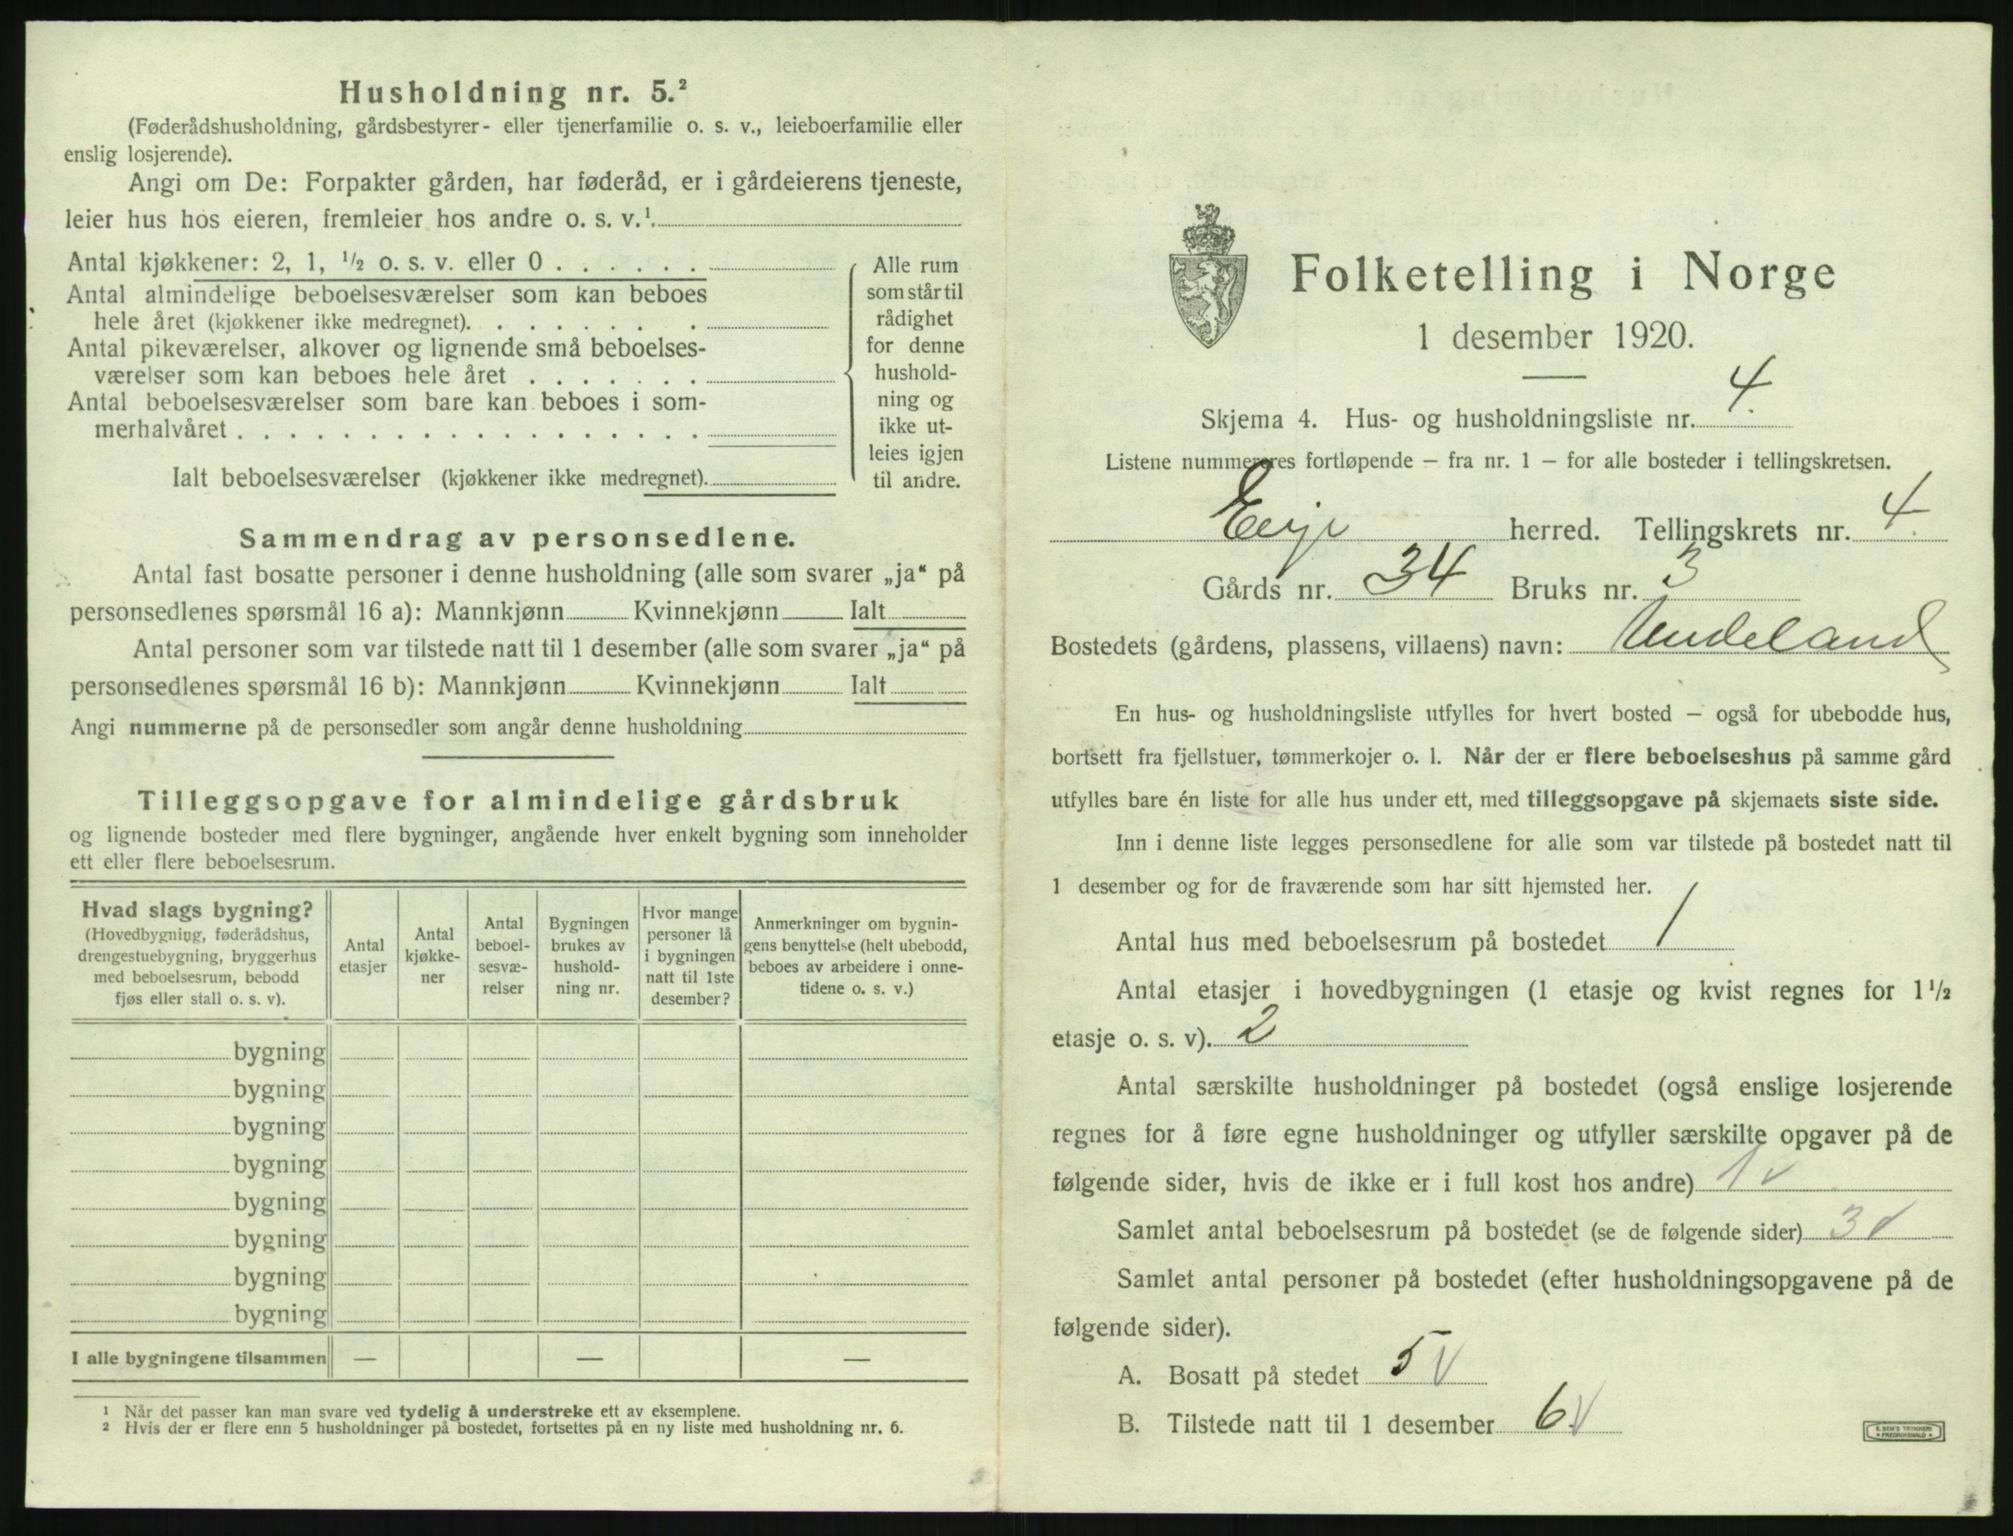 Husholdning nr. 5.²
(Føderådshusholdning, gårdsbestyrer- eller tjenerfamilie o. s. v., leieboerfamilie eller
enslig losjerende).
Angi om De: Forpakter gården, har føderåd, er i gårdeierens tjeneste,
leier hus hos eieren, fremleier hos andre o. s. v.¹.
Antal kjøkkener: 2, 1, ½ o. s. v. eller 0 . . . . . .
Antal almindelige beboelsesværelser som kan beboes
hele året (kjøkkener ikke medregnet). . . . . . . . .
Antal pikeværelser, alkover og lignende små beboelses-
værelser som kan beboes hele året . . . . . . .
Antal beboelsesværelser som bare kan beboes i som-
merhalvåret . . . . . . . . . . . . . . . . . .
Ialt beboelsesværelser (kjøkkener ikke medregnet).
Alle rum
som står til
rådighet
for denne
hushold-
ning og
ikke ut-
leies igjen
til andre.
Sammendrag av personsedlene.
Antal fast bosatte personer i denne husholdning (alle som svarer „ja“ på
personsedlenes spørsmål 16 a): Mannkjønn Kvinnekjønn Ialt
Antal personer som var tilstede natt til 1 desember (alle som svarer „ja“ på
personsedlenes spørsmål 16 b): Mannkjønn Kvinnekjønn Ialt
Angi nummerne på de personsedler som angår denne husholdning
Tilleggsopgave for almindelige gårdsbruk
og lignende bosteder med flere bygninger, angående hver enkelt bygning som inneholder
ett eller flere beboelsesrum.
Hvad slags bygning?
(Hovedbygning, føderådshus,
drengestuebygning, bryggerhus
med beboelsesrum, bebodd
fjøs eller stall o. s. v).
Antal
etasjer
Antal
kjøkke-
ner
Antal
beboel-
sesvæ-
relser
Bygningen
brukes av
hushold-
ning nr.
Hvor mange
personer lå
i bygningen
natt til 1ste
desember?
Anmerkninger om bygnin-
gens benyttelse (helt ubebodd,
beboes av arbeidere i onne-
tidene o. s. v.)
bygning
bygning
bygning
bygning
bygning
bygning
bygning
bygning
I alle bygningene tilsammen — — —
¹ Når det passer kan man svare ved tydelig å understreke ett av eksemplene.
² Hvis der er flere enn 5 husholdninger på bostedet, fortsettes på en ny liste med husholdning nr. 6.
Folketelling i Norge
1 desember 1920.
Skjema 4. Hus- og husholdningsliste nr. 4.
Listene nummereres fortløpende – fra nr. 1 – for alle bosteder i tellingskretsen.
herred. Tellingskrets nr. 4.
Gårds nr. 34 Bruks nr. 3
Bostedets (gårdens, plassens, villaens) navn: Undeland
En hus- og husholdningsliste utfylles for hvert bosted – også for ubebodde hus,
bortsett fra fjellstuer, tømmerkojer o. l. Når der er flere beboelseshus på samme gård
utfylles bare én liste for alle hus under ett, med tilleggsopgave på skjemaets siste side.
Inn i denne liste legges personsedlene for alle som var tilstede på bostedet natt til
1 desember og for de fraværende som har sitt hjemsted her.
Antal hus med beboelsesrum på bostedet 1
Antal etasjer i hovedbygningen (1 etasje og kvist regnes for 1½
etasje o. s. v). 2
Antal særskilte husholdninger på bostedet (også enslige losjerende
regnes for å føre egne husholdninger og utfyller særskilte opgaver på de
følgende sider, hvis de ikke er i full kost hos andre) 1 v
Samlet antal beboelsesrum på bostedet (se de følgende sider) 3 v
Samlet antal personer på bostedet (efter husholdningsopgavene på de
følgende sider).
A. Bosatt på stedet 5 v
B. Tilstede natt til 1 desember 6. v
E. SEM'S TRYKKERI
FREDRIKSHALD